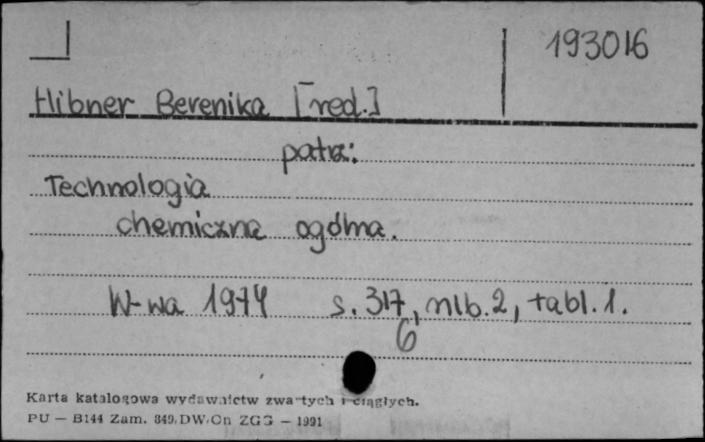 193016
Hibner Berenika [red.]
patrz:
Technologia
chemiczna ogólna.
W-wa 1974 s. 317, nlb. 2, tabl. 1.
6
Karta katalogowa wydawnictw zwartych i ciągłych.
PU — B144 Zam. 849. DW. Cn ZGG — 1991